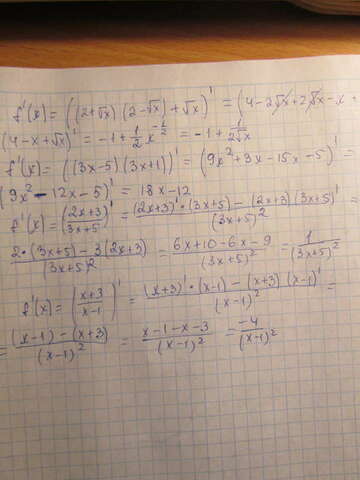 f'(x) = ((2+√x)(2-√x)+√x)' = (4-2√x+2√x-x+
(4-x+√x)' = -1+1/2 x^(-1/2) = -1+1/(2√x)
f'(x) = ((3x-5)(3x+1))' = (9x²+3x-15x-5)' =
(9x²-12x-5)' = 18x-12
f'(x) = ((2x+3)/(3x+5))' = ((2x+3)'·(3x+5)-(2x+3)(3x+5)')/(3x+5)² =
(2·(3x+5)-3(2x+3))/(3x+5)² = (6x+10-6x-9)/(3x+5)² = 1/(3x+5)²
f'(x) = ((x+3)/(x-1))' = ((x+3)'·(x-1)-(x+3)(x-1)')/(x-1)² =
= ((x-1)-(x+3))/(x-1)² = (x-1-x-3)/(x-1)² = -4/(x-1)²